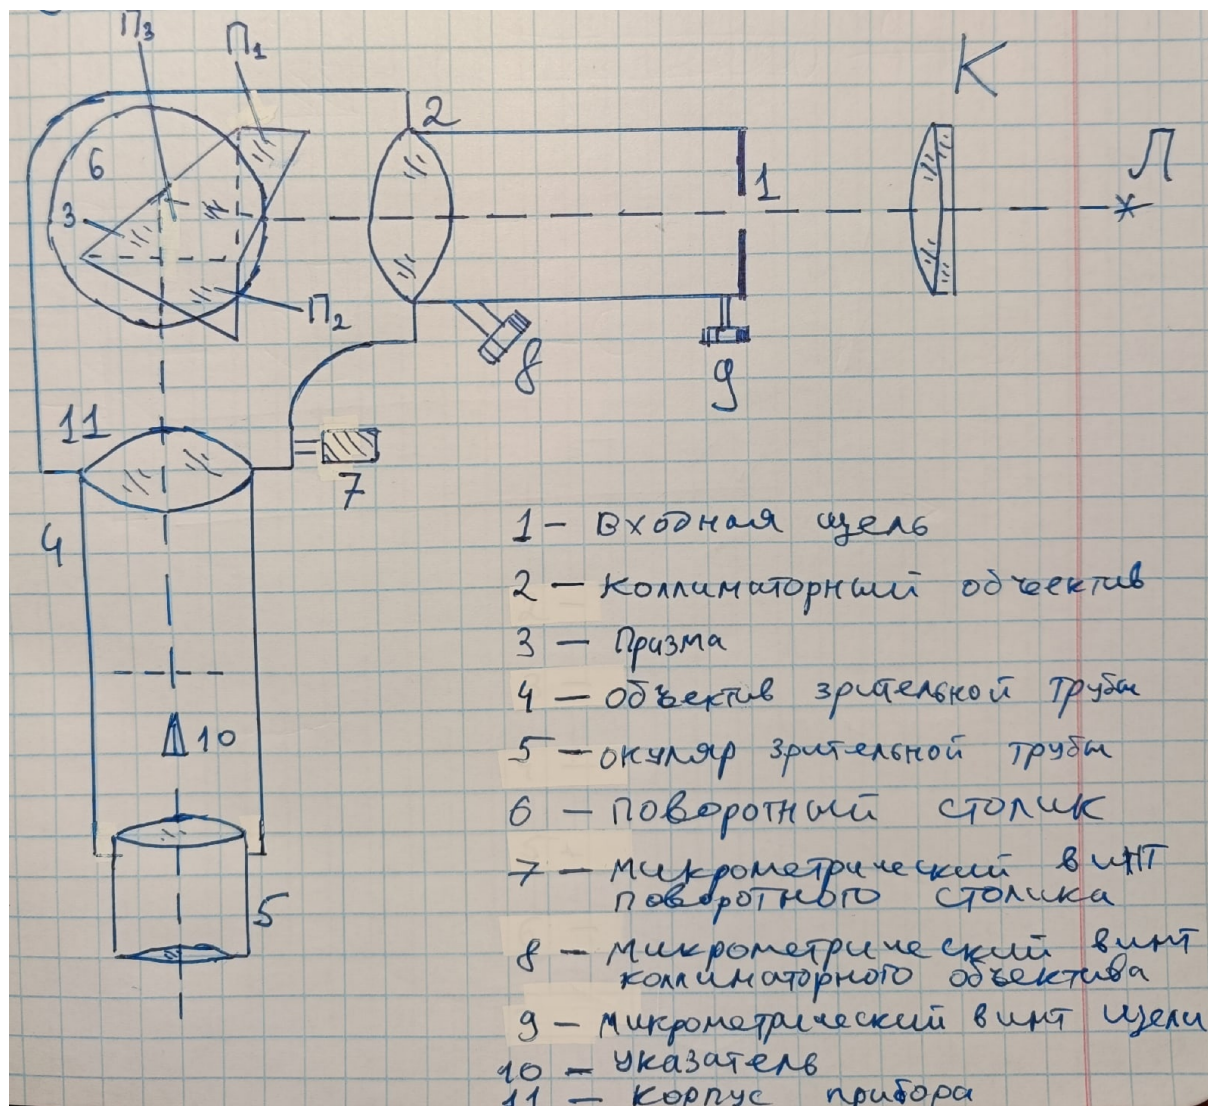 П₃
П₁
2
К
6
Л
1
3
П₂
8
9
11
7
4
1 – Входная щель
2 – Коллиматорный объектив
3 – Призма
4 – Объектив зрительной трубы
10
5 – окуляр зрительной трубы
6 – поворотный столик
7 – микрометрический винт
поворотного столика
5
8 – микрометрический винт
коллиматорного объектива
9 – микрометрический винт щели
10 – указатель
11 – корпус прибора